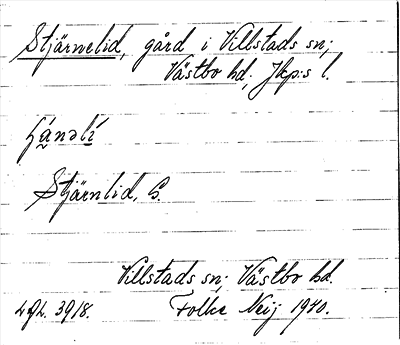 Stjärnelid, gård i Villstads sn;
Västbo hd; Jkp:s l.
Stjärnlid, G.
Villstads sn; Västbo hd.
Folke Neij 1940.